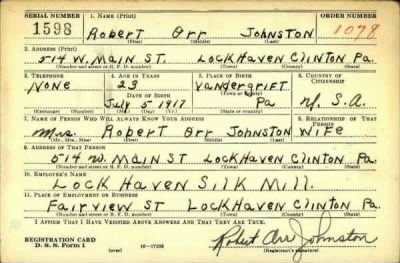 SERIAL NUMBER 1. NAME (Print) ORDER NUMBER
1598 Robert Orr Johnston 1078
(First) (Middle) (Last)
2. ADDRESS (Print)
514 W. MAIN ST LOCK HAVEN CLINTON Pa.
(Number and street or R. F. D. number) (Town) (County) (State)
3. TELEPHONE 4. AGE IN YEARS 5. PLACE OF BIRTH 6. COUNTRY OF CITIZENSHIP
NONE 23 Vandergrift
DATE OF BIRTH (Town or county)
July 5 1917 Pa U. S. A.
(Exchange) (Number) (Mo.) (Day) (Yr.) (State or country)
7. NAME OF PERSON WHO WILL ALWAYS KNOW YOUR ADDRESS 8. RELATIONSHIP OF THAT PERSON
Mrs Robert Orr Johnston WIFE
(Mr., Mrs., Miss) (First) (Middle) (Last)
9. ADDRESS OF THAT PERSON
514 W. MAIN ST LOCK HAVEN CLINTON Pa.
(Number and street or R. F. D. number) (Town) (County) (State)
10. EMPLOYER'S NAME
LOCK HAVEN SILK MILL.
11. PLACE OF EMPLOYMENT OR BUSINESS
FAIRVIEW ST LOCK HAVEN CLINTON Pa.
(Number and street or R. F. D. number) (Town) (County) (State)
I AFFIRM THAT I HAVE VERIFIED ABOVE ANSWERS AND THAT THEY ARE TRUE.
REGISTRATION CARD
D. S. S. Form 1 (over) 16—17105 Robert Orr Johnston
(Registrant's signature)